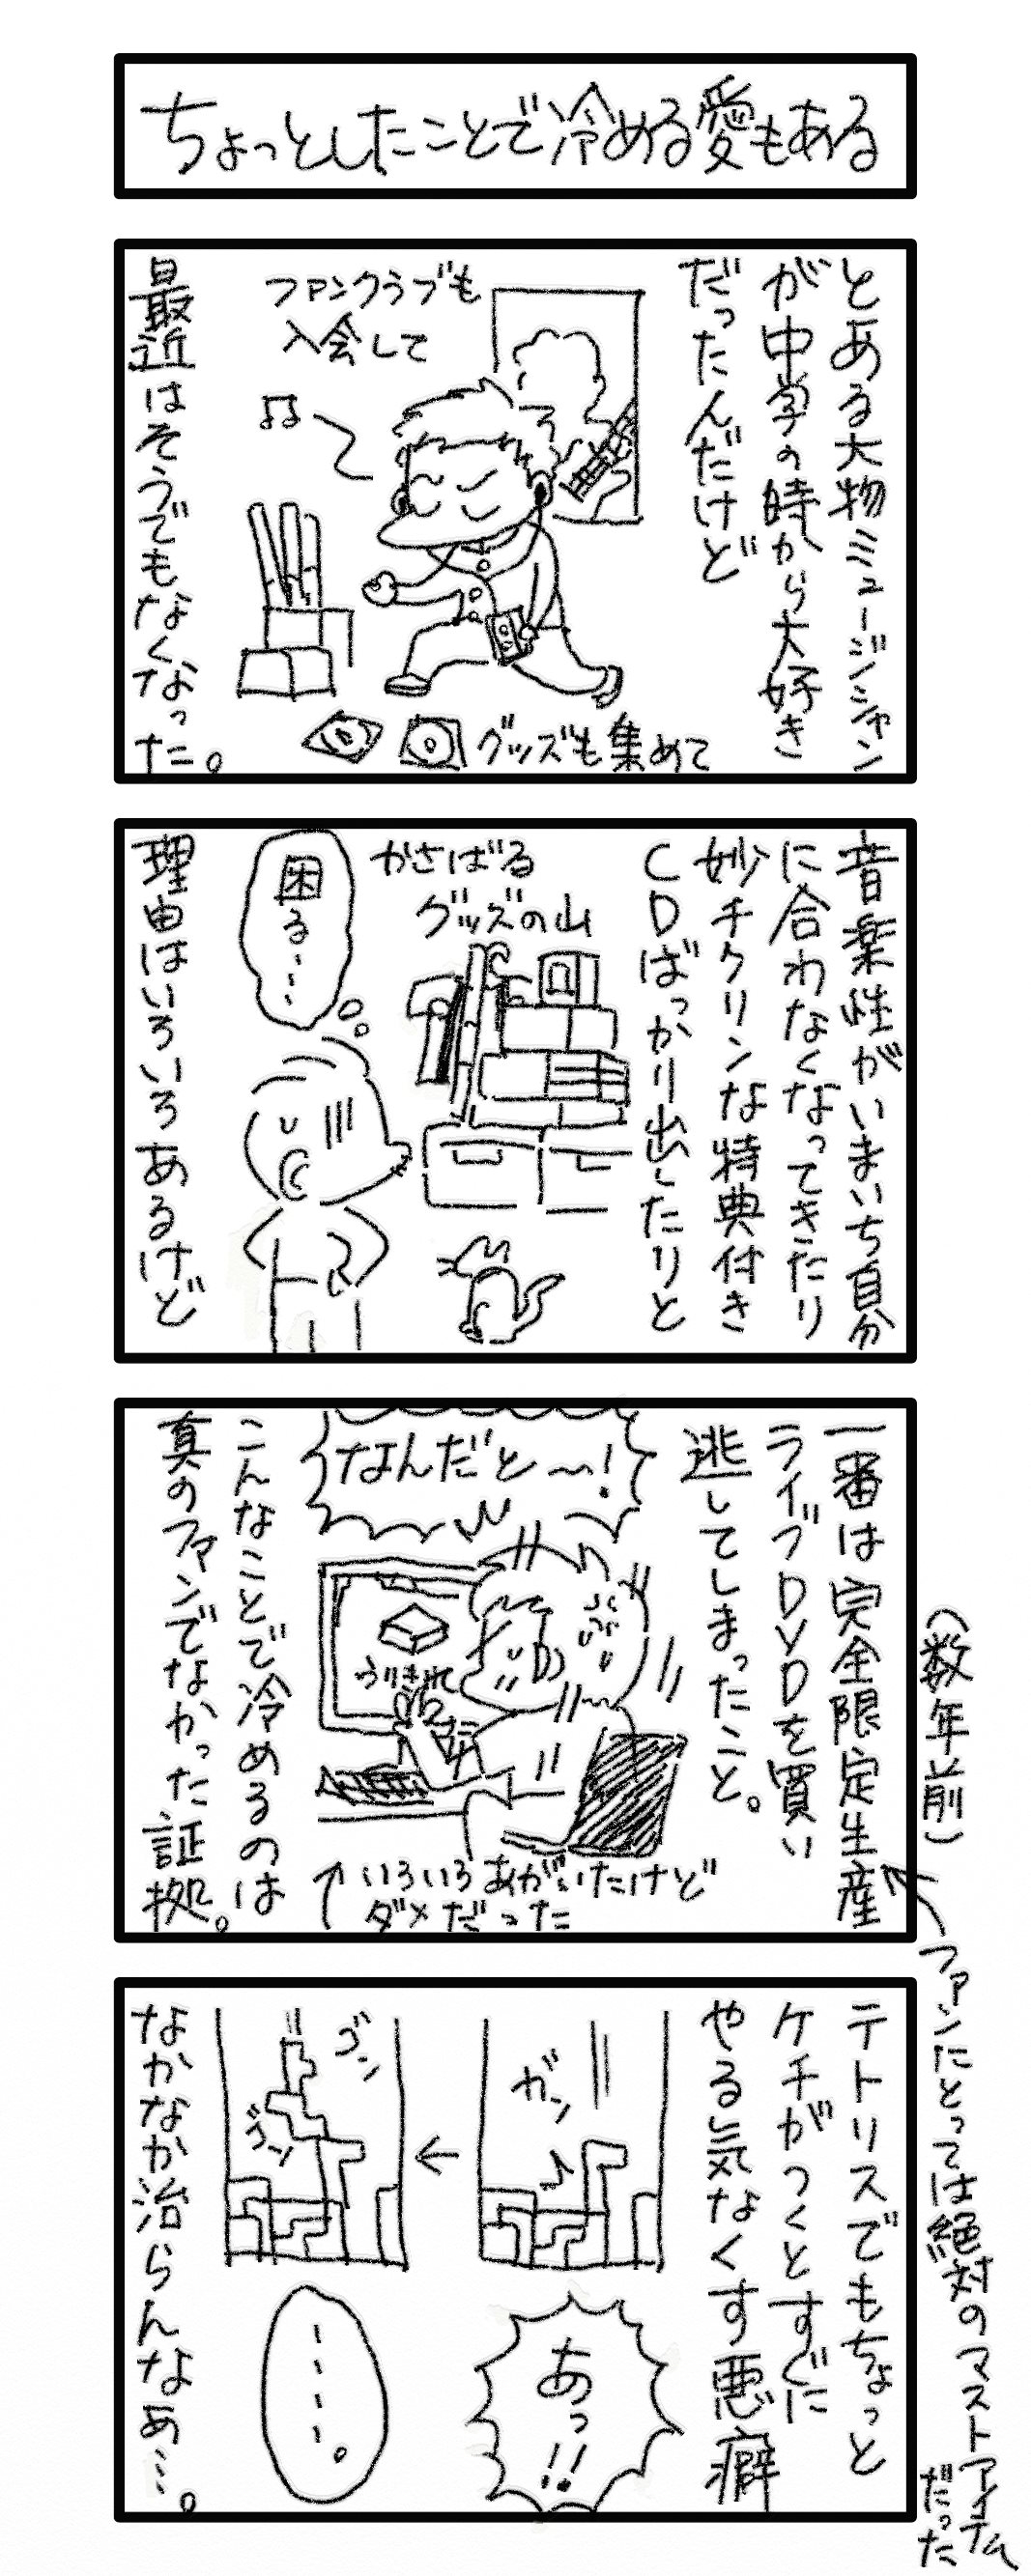 ちょっとしたことで冷める愛もある
とある大物ミュージシャン
が中学の時から大好き
だったんだけど
ファンクラブも
入会して
グッズも集めて
最近はそうでもなくなった。
音楽性がいまいち自分
に合わなくなってきたり
妙チクリンな特典付き
CDばっかり出したりと
かさばる
グッズの山
困る…
理由はいろいろあるけど
(数年前)
一番は完全限定生産
ライブDVDを買い
逃してしまったこと。
なんだと〜!
うりきれ
いろいろあがいたけど
ダメだった
こんなことで冷めるのは
真のファンでなかった証拠。
ファンにとっては絶対のマストアイテム
だった
テトリスでもちょっと
ケチがつくとすぐに
やる気なくす悪癖
ガン
あっ!!
ゴン
ゴン
----。
なかなか治らんなぁ…。